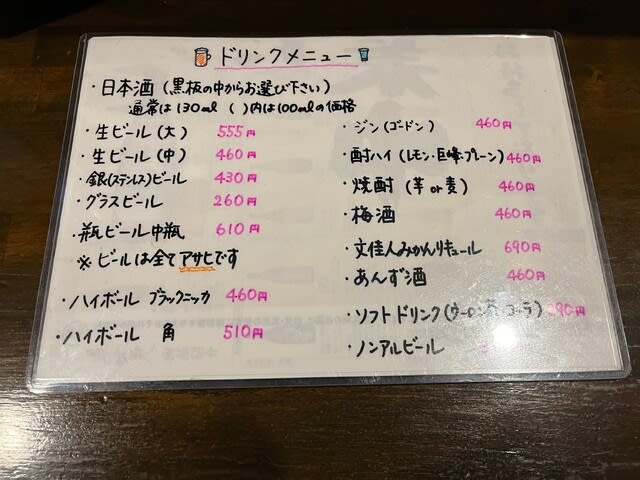 ドリンクメニュー
・日本酒(黒板の中からお選び下さい)
通常は130ml ( )内は100mlの価格
・生ビール(大) 555円
・生ビール(中) 460円
・銀(ステンレス)ビール 430円
・グラスビール 260円
・瓶ビール中瓶 610円
※ ビールは全てアサヒです
・ハイボール ブラックニッカ 460円
・ハイボール 角 510円
・ジン(ゴードン) 460円
・酎ハイ(レモン・巨峰・プレーン) 460円
・焼酎(芋or麦) 460円
・梅酒 460円
・文佳人みかんリキュール 690円
・あんず酒 460円
・ソフトドリンク(ウーロン茶・コーラ) 90円
・ノンアルビール